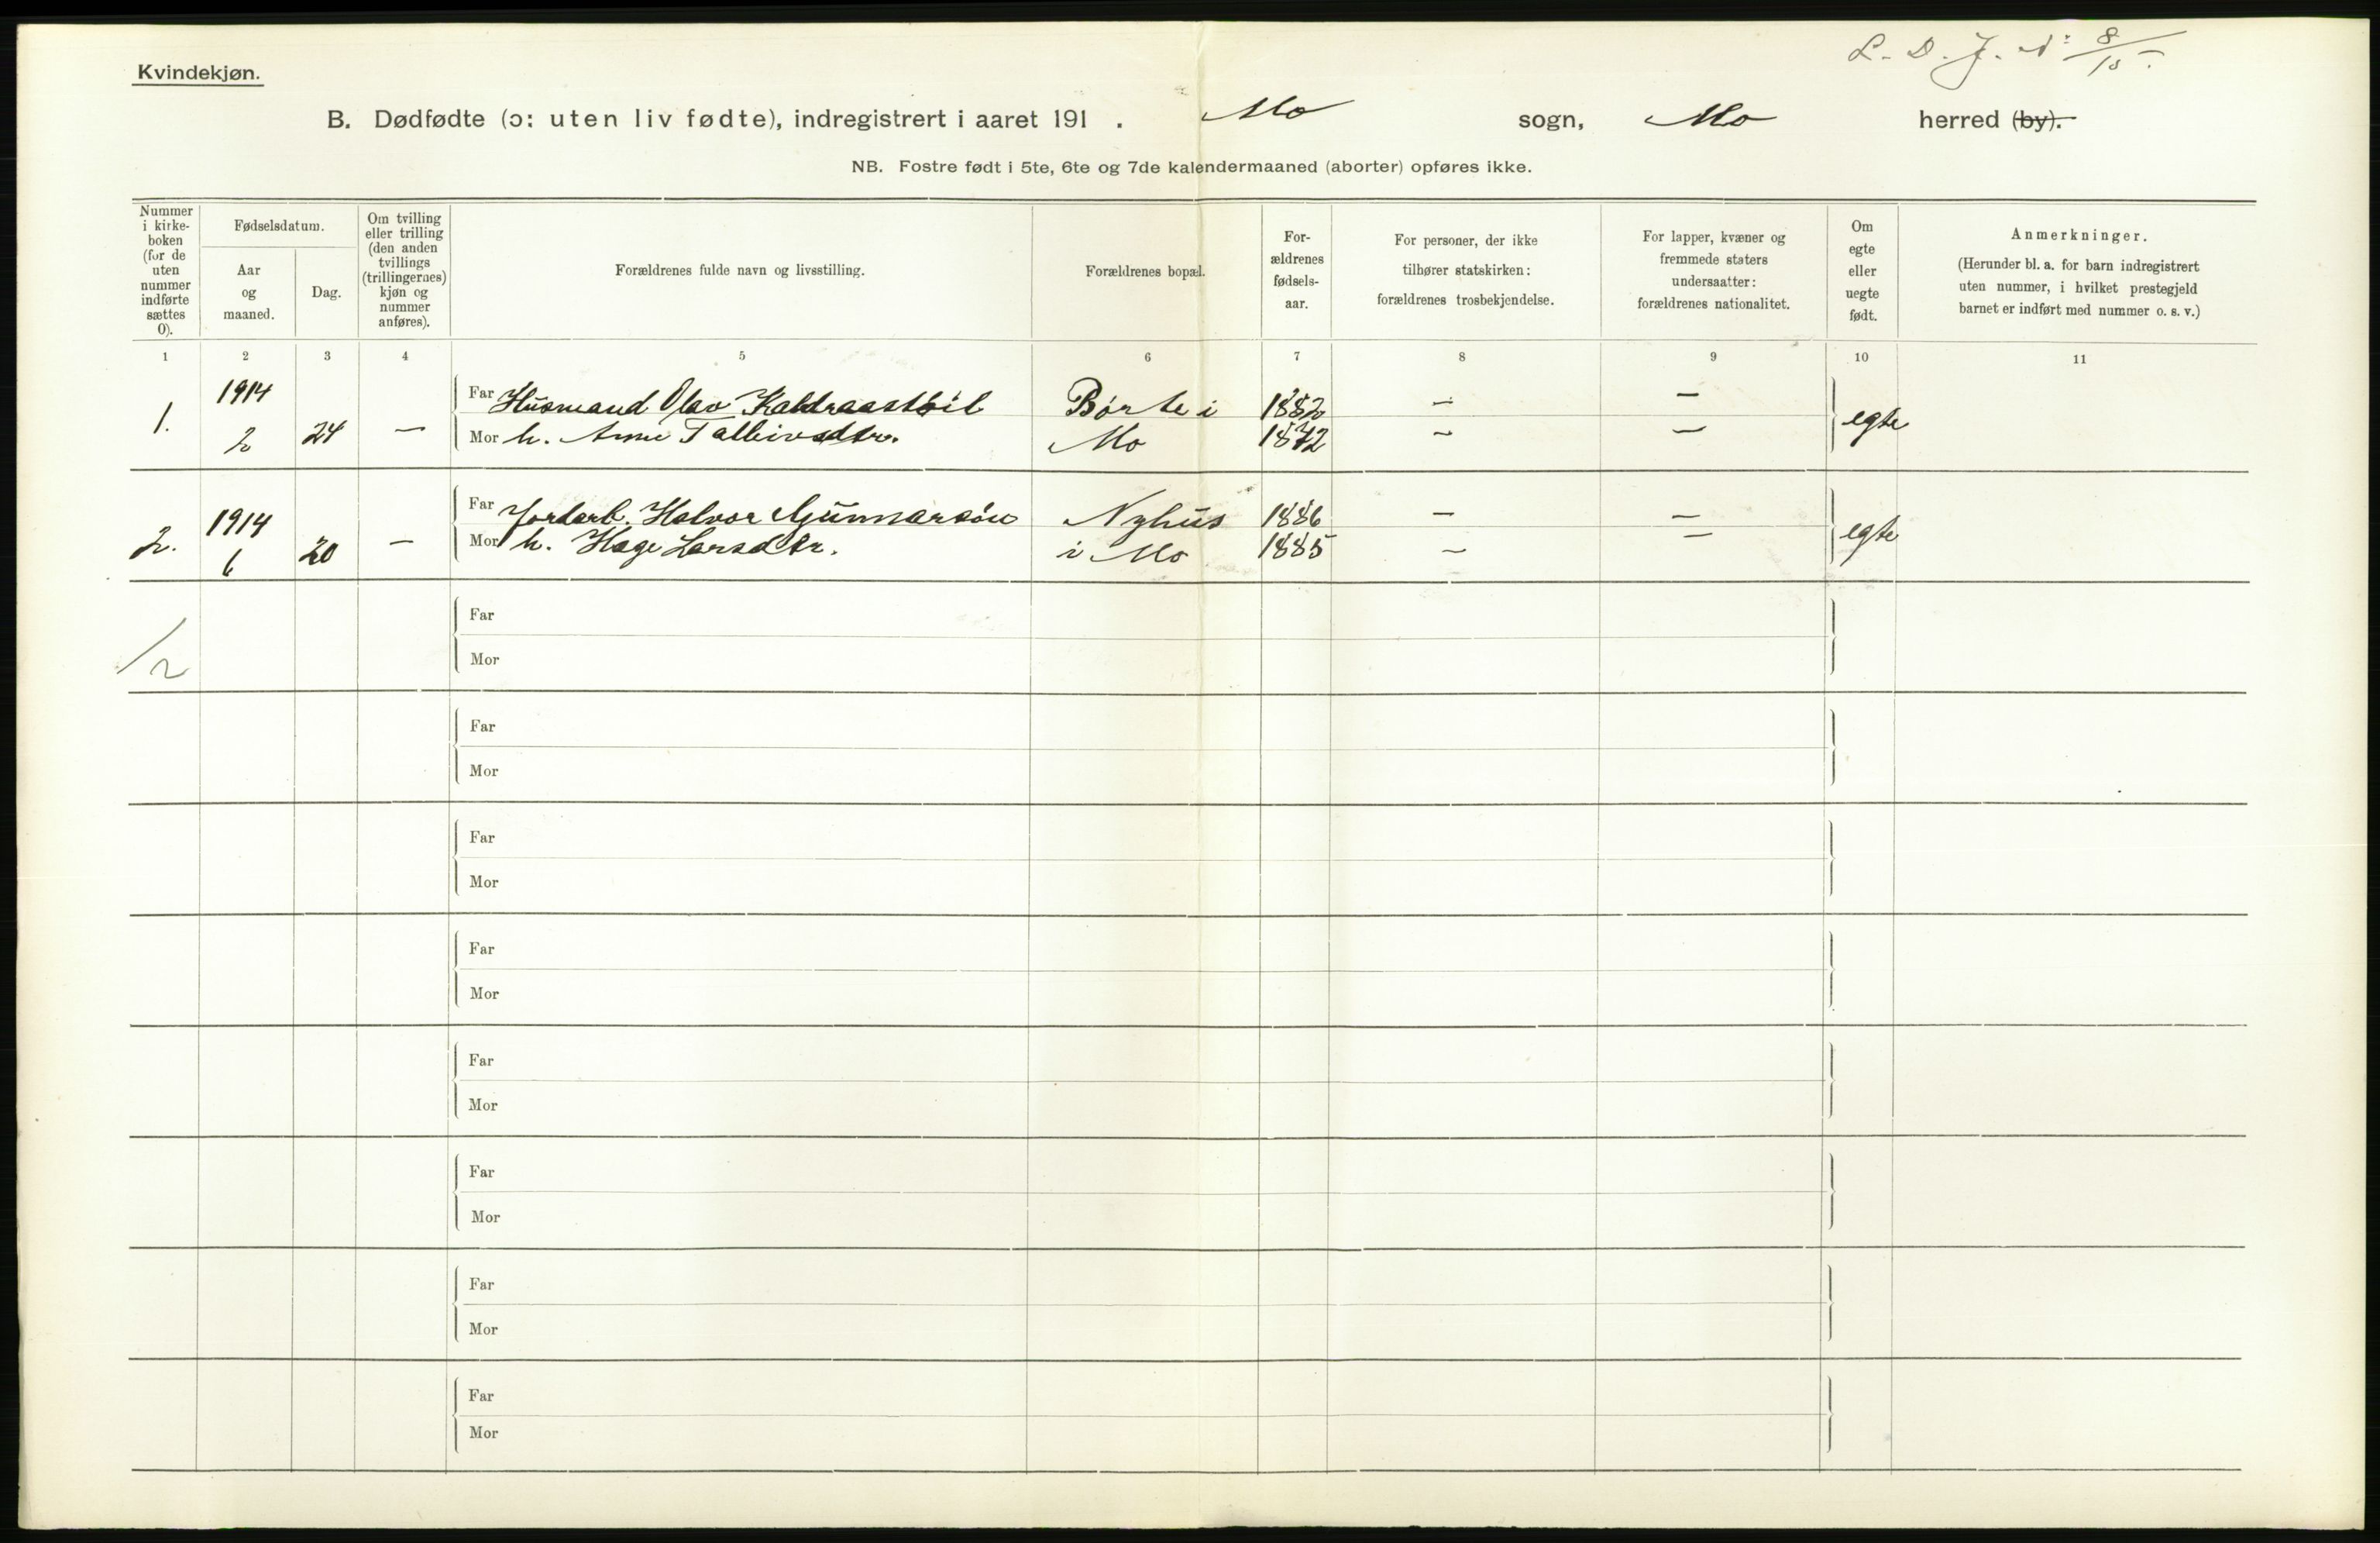 L. D. J. № 8/15.
Kvindekjøn.
B. Dødfødte (ɔ: uten liv fødte), indregistrert i aaret 191 . Mo sogn, Mo herred (by).
NB. Fostre født i 5te, 6te og 7de kalendermaaned (aborter) opføres ikke.
Nummer
i kirke-
boken
(for de
uten
nummer
indførte
sættes
0).
Fødselsdatum.
Aar
og
maaned.
Dag.
Om tvilling
eller trilling
(den anden
tvillings
(trillingernes)
kjøn og
nummer
anføres).
Forældrenes fulde navn og livsstilling.
Forældrenes bopæl.
For-
ældrenes
fødsels-
aar.
For personer, der ikke
tilhører statskirken:
forældrenes trosbekjendelse.
For lapper, kvæner og
fremmede staters
undersaatter:
forældrenes nationalitet.
Om
egte
eller
uegte
født.
Anmerkninger.
(Herunder bl. a. for barn indregistrert
uten nummer, i hvilket prestegjeld
barnet er indført med nummer o. s. v.)
1 2 3 4 5 6 7 8 9 10 11
1. 1914 2 24 —
Far Husmand Olav Børte i 1882 — —
Mor h. Anne Talleivsdtr. Mo 1872 — — egte
2. 1914 6 20 —
Far Jordarb. Halvor Gunnarsön Nyhus 1886 — —
Mor h. Hæge Larsdtr. i Mo 1885 — — egte
/2
Far
Mor
Far
Mor
Far
Mor
Far
Mor
Far
Mor
Far
Mor
Far
Mor
Far
Mor